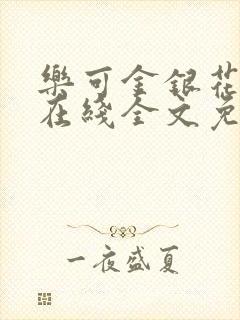 樂可金銀花
在綫全文免
一夜盛夏